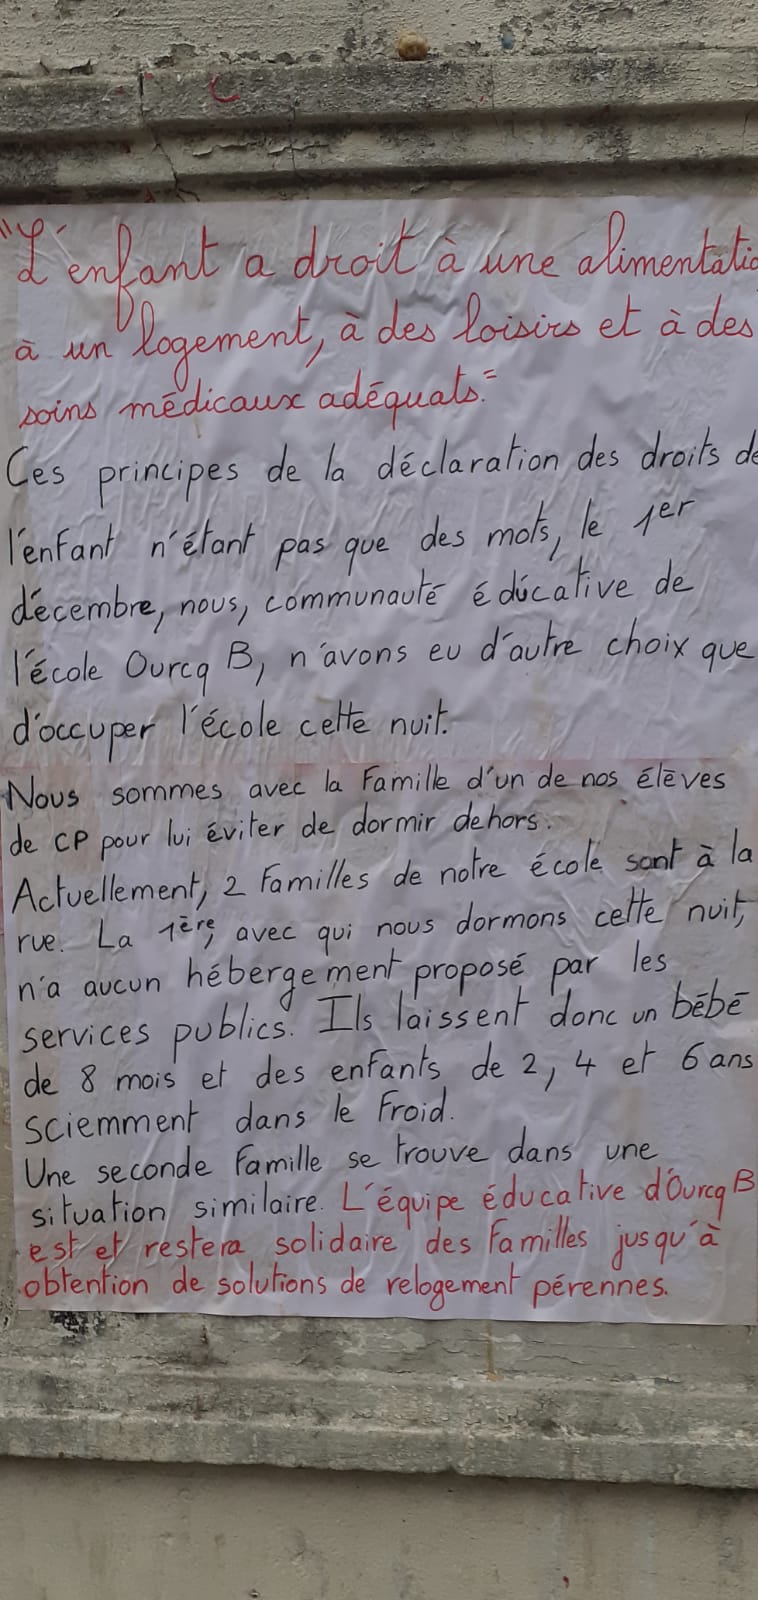 "L'enfant a droit à une alimentatio
à un logement, à des loisirs et à des
soins médicaux adéquats."
Ces principes de la déclaration des droits de
l'enfant n'étant pas que des mots, le 1er
décembre, nous, communauté éducative de
l'école Ourcq B, n'avons eu d'autre choix que
d'occuper l'école cette nuit.
Nous sommes avec la famille d'un de nos élèves
de CP pour lui éviter de dormir dehors.
Actuellement, 2 familles de notre école sont à la
rue. La 1ère, avec qui nous dormons cette nuit,
n'a aucun hébergement proposé par les
services publics. Ils laissent donc un bébé
de 8 mois et des enfants de 2, 4 et 6 ans
sciemment dans le froid.
Une seconde famille se trouve dans une
situation similaire. L'équipe éducative d'Ourcq B
est et restera solidaire des familles jusqu'à
obtention de solutions de relogement pérennes.